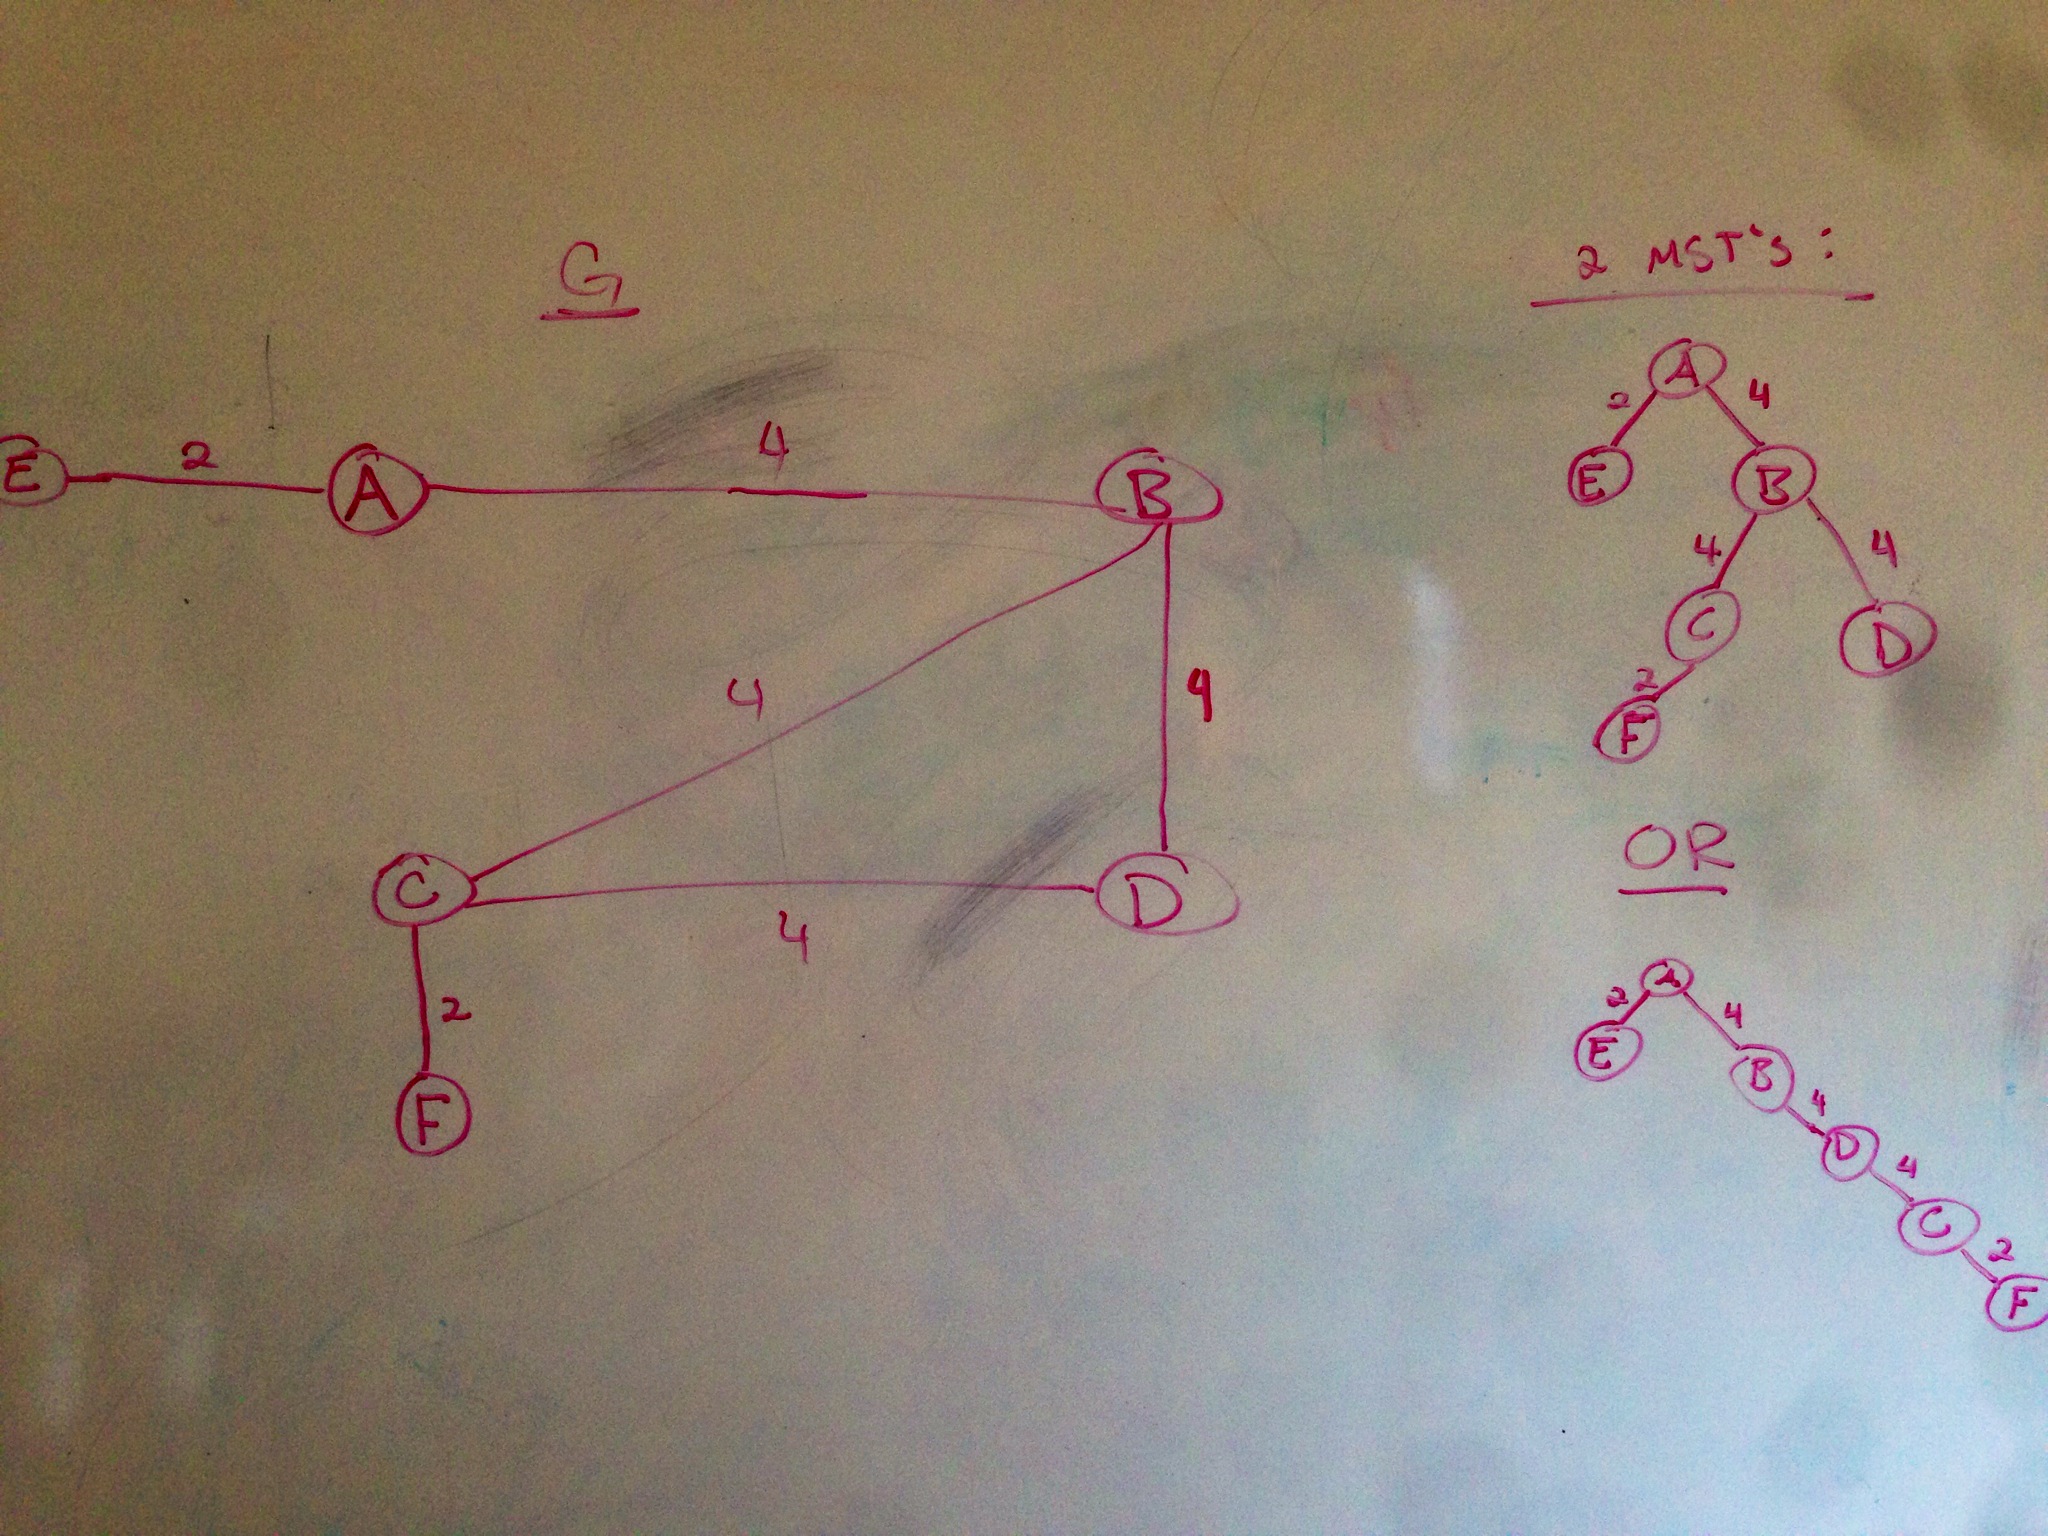 G
E 2 A 4 B
4 4
C 4 D
2
F
2 MST'S:
A
2 4
E B
4 4
C D
2
F
OR
A
2 4
E B
4
D
4
C
2
F